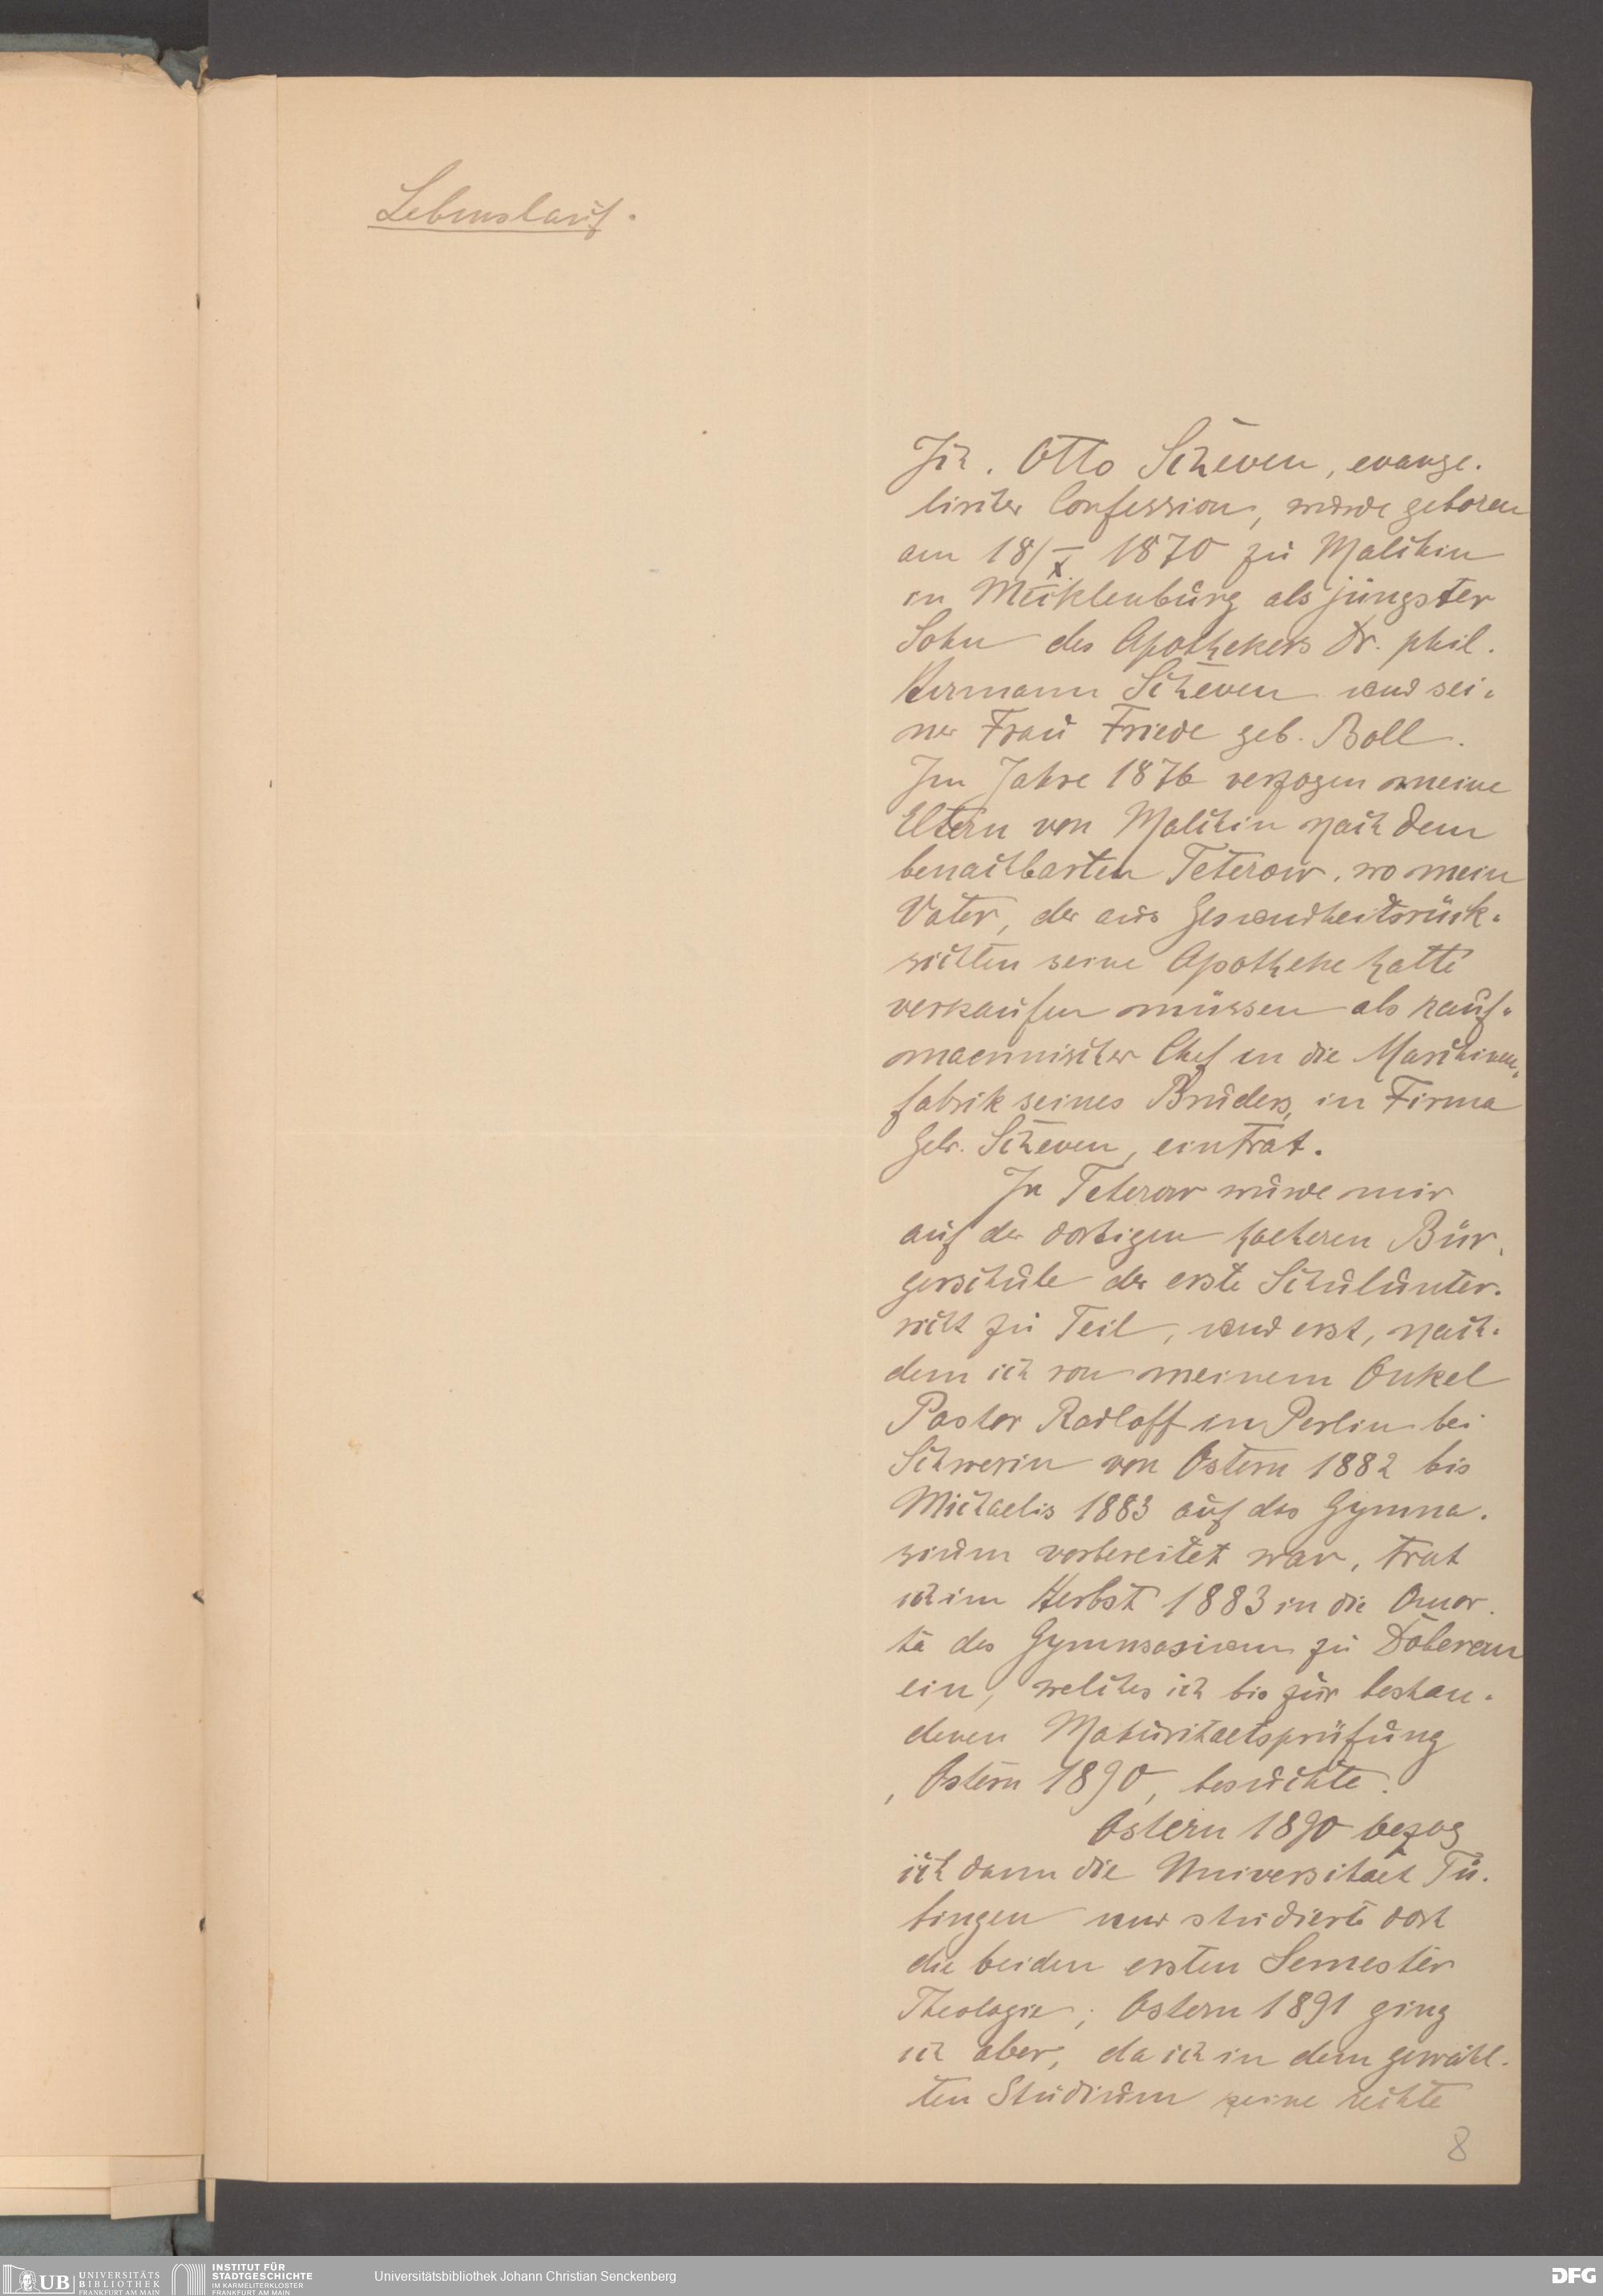 Lebenslauf.
Ich, Otto Scheven, evange-
lischer Confession, wurde geboren
am 18/X 1870 zu Malchin
in Mecklenburg als jüngster
Sohn des Apothekers Dr. phil.
Hermann Scheven und sei-
ner Frau Friede geb. Boll.
Im Jahre 1876 verzogen meine
Eltern von Malchin nach dem
benachbarten Teterow, wo mein
Vater, der aus Gesundheitsrück-
sichten seine Apotheke hatte
verkaufen müssen als kauf-
maennischer Chef in die Maschinen-
fabrik seines Bruders, in Firma
Gebr. Scheven, eintrat.
In Teterow wurde mir
auf der dortigen hoeheren Bür-
gerschule der erste Schulunter-
richt zu Teil, und erst, nach-
dem ich von meinem Onkel
Pastor Radloff in Perlin bei
Schwerin von Ostern 1882 bis
Michaelis 1883 auf das Gymna-
sium vorbereitet war, trat
ich im Herbst 1883 in die Quar-
ta des Gymnasium zu Doberan
ein, welches ich bis zur bestan-
denen Maturitaetsprüfung
, Ostern 1890, besuchte.
Ostern 1890 bezog
ich dann die Universitaet Tü-
bingen und studierte dort
die beiden ersten Semester
Theologie; Ostern 1891 ging
ich aber, da ich in dem gewähl-
ten Studium keine rechte
8
UB UNIVERSITÄTS
BIBLIOTHEK
FRANKFURT AM MAIN
INSTITUT FÜR
STADTGESCHICHTE
IM KARMELITERKLOSTER
FRANKFURT AM MAIN
Universitätsbibliothek Johann Christian Senckenberg
DFG